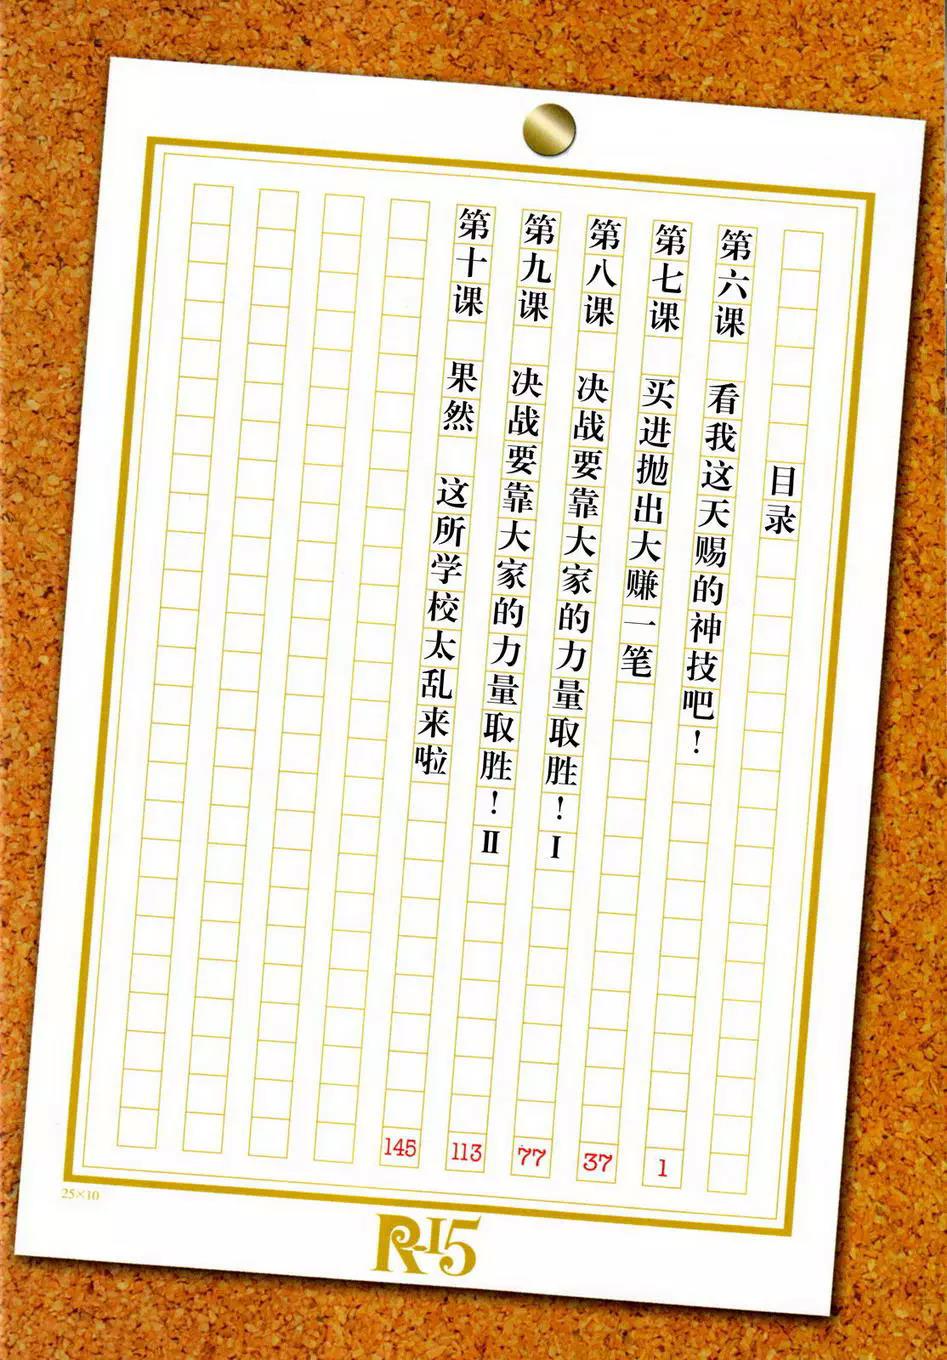 目录
第六课 看我这天赐的神技吧！ 1
第七课 买进抛出大赚一笔 37
第八课 决战要靠大家的力量取胜！I 77
第九课 决战要靠大家的力量取胜！II 113
第十课 果然 这所学校太乱来啦 145
25×10
R-15